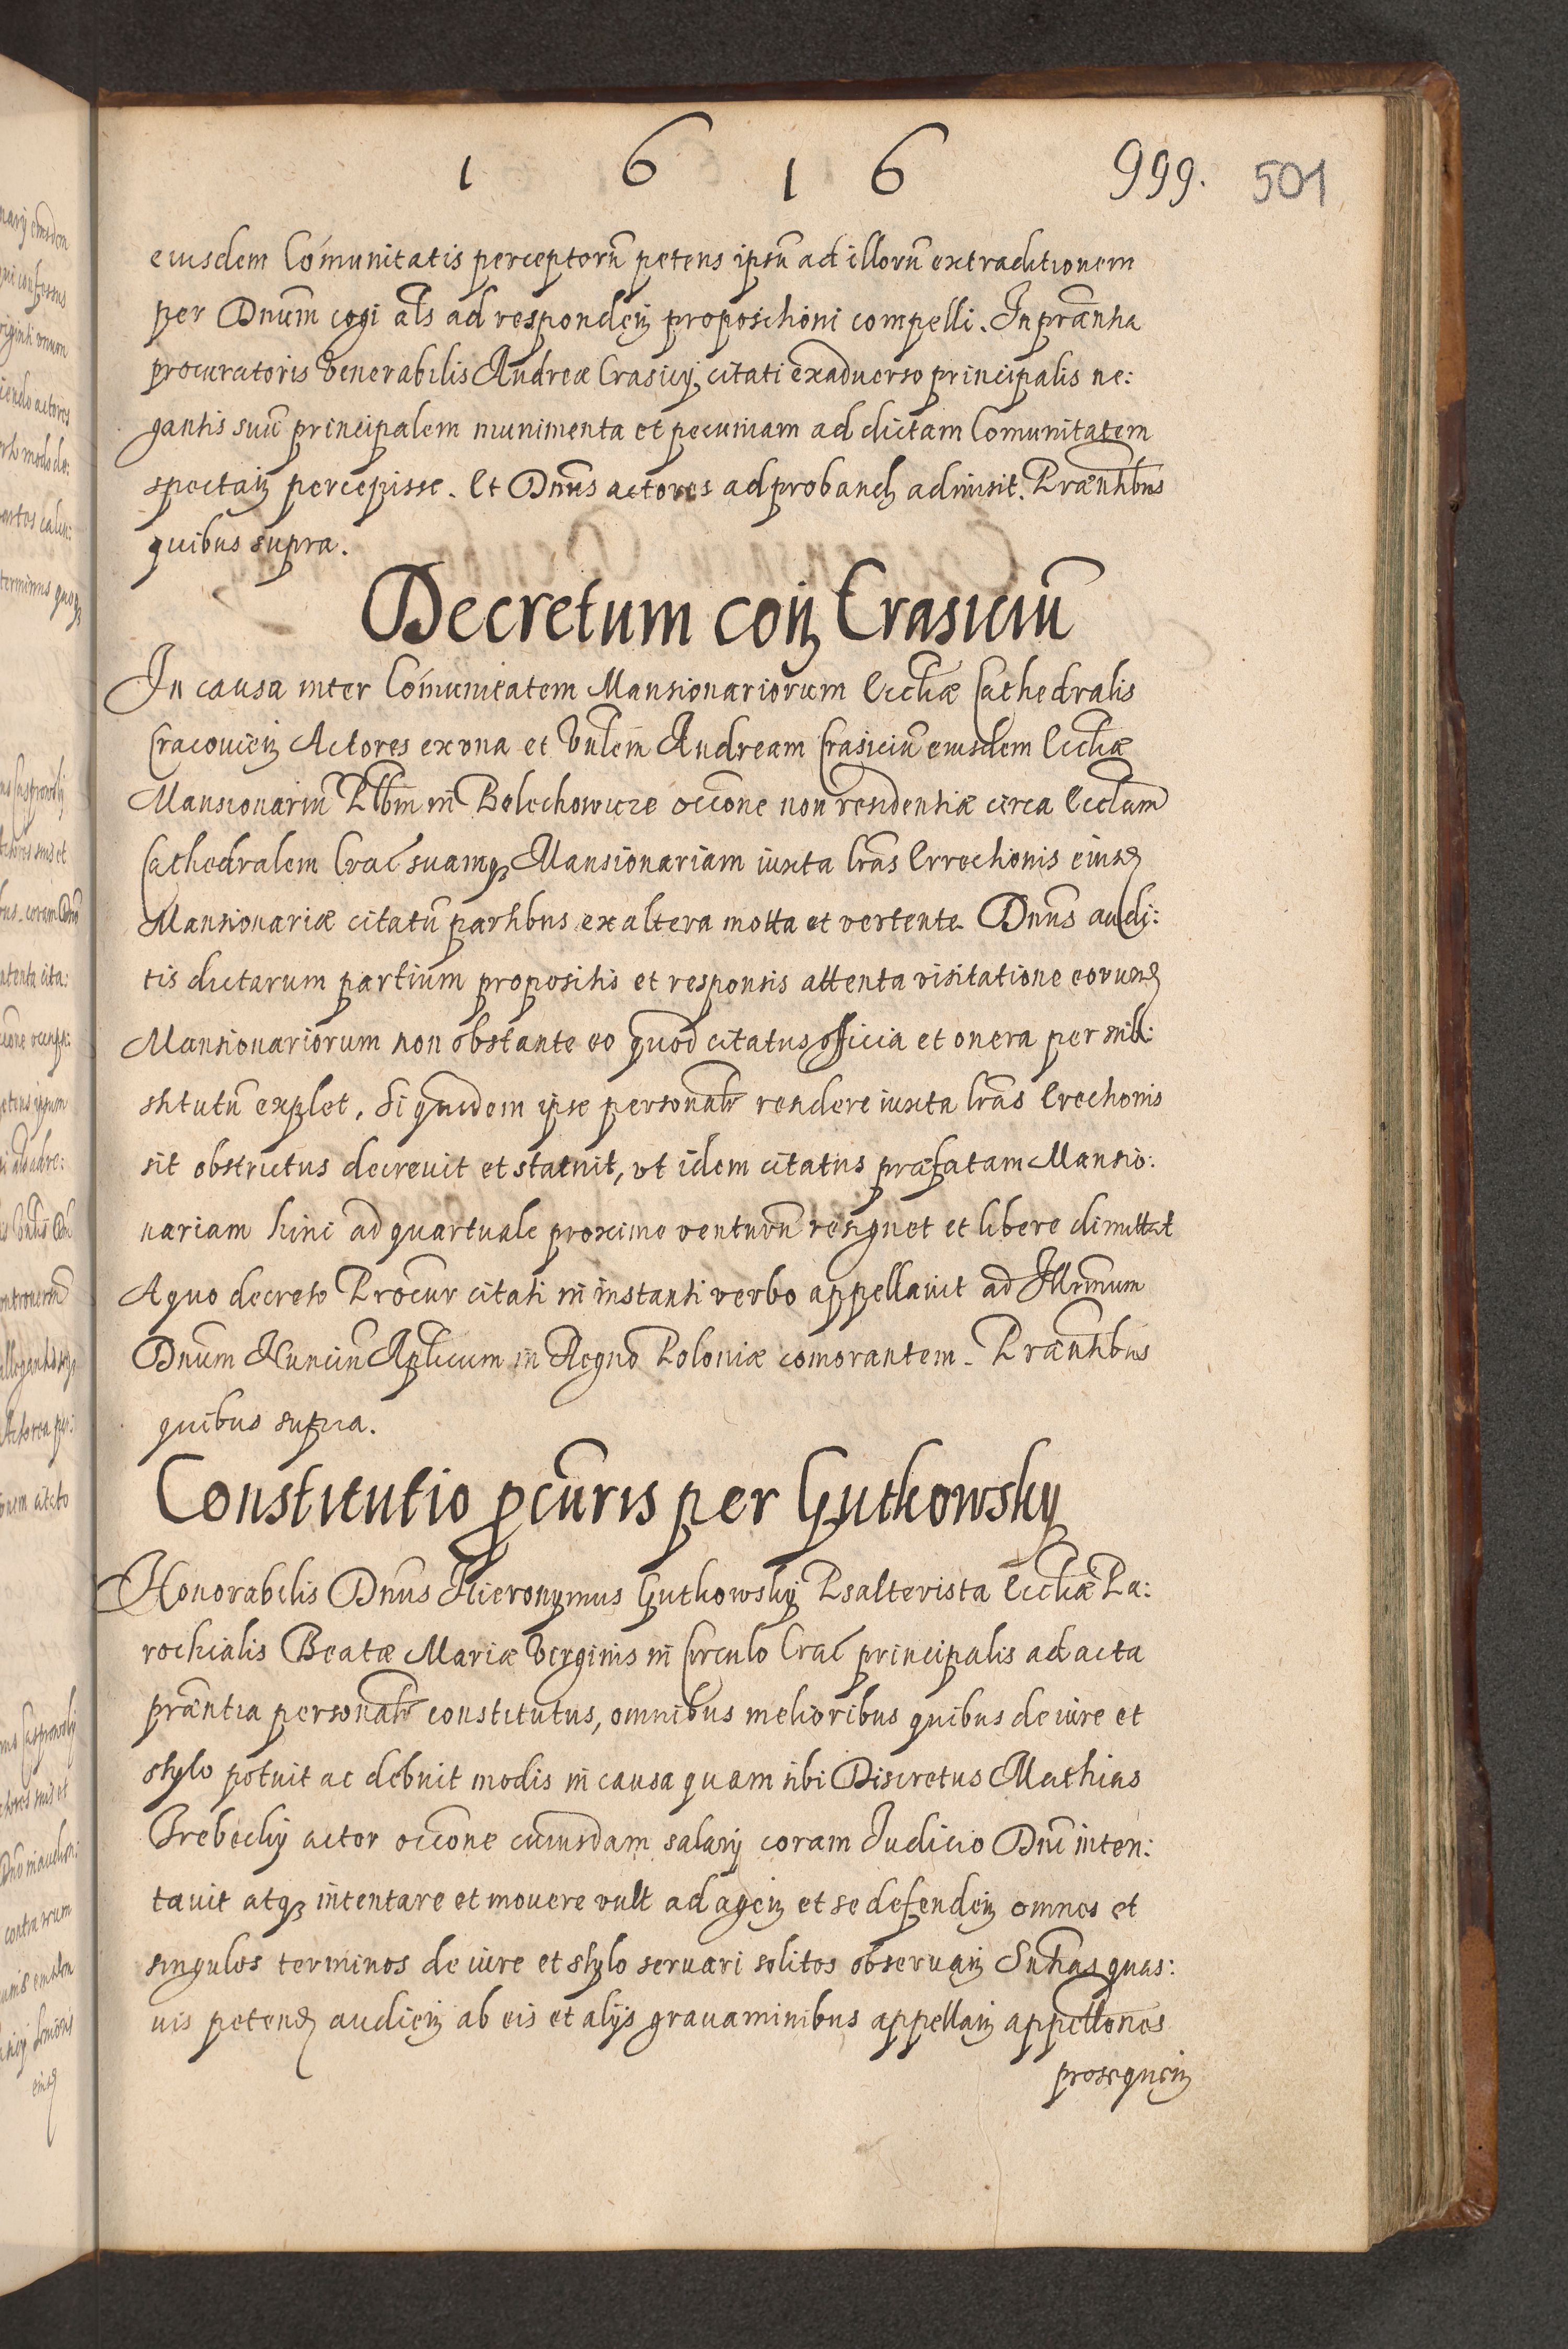 1 6 1 6 999. 501
eiusdem Com̃unitatis perceptorũ petens ipsũ ad illorũ extraditionem
per Dnum̃ cogi als̃ ad responden̄ propositioni compelli. In prãntia
procuratoris Venerabilis Andreæ Crasicij citati ex aduerso principalis ne:
gantis suũ principalem munimenta et pecuniam ad dictam Comunitatem
spectan̄ percepisse. Et Dnũs actores ad proband̄ admisit. Præntĩbus
quibus supra.
Decretum con̄ Crasiciũ
In causa inter Com̃unitatem Mansionariorum Eccliæ Cathedralis
Cracouien̄ Actores ex vna et Vnl̃em Andream Crasiciũ eiusdem Eccliæ
Mansionariũ Plbm̃ in Bolechowicze occõne non residentiæ circa Eccl̃am
Cathedralem Crac̃ suamq; Mansionariam iuxta lrãs Errectionis eiusd̄
Mansionariæ citatũ partibus ex altera motta et vertente. Dnũs audi:
tis dictarum partium propositis et responsis attenta visitatione eorund̄
Mansionariorum non obstante eo quod citatus officia et onera per sub:
stitutũ explet, si quidem ipse personalr̃ residere iuxta lrãs Erectionis
sit obstrictus decreuit et statuit, vt idem citatus præfatam Mansio:
nariam hinc ad quartuale proximo venturũ resignet et libere dimittat
A quo decreto Procur̃ citati in instanti verbo appellauit ad Illr̃mum
Dnum̃ Nunciũ Apl̃icum in Regno Poloniæ comorantem. Prãntibus
quibus supra.
Constitutio pcũris per Gutkowsky
Honorabilis Dnũs Hieronymus Gutkowskij Psalterista Eccliæ Pa:
rochialis Beatæ Mariæ Virginis in Circulo Crac̃ principalis ad acta
prãntia personalr̃ constitutus, omnibus melioribus quibus de iure et
stylo potuit ac debuit modis in causa quam sibi Discretus Mathias
Trebecky actor occõne cuiusdam salarij coram Iudicio Dnĩ inten:
tauit atq; intentare et mouere vult ad agen̄ et se defenden̄ omnes et
singulos terminos de iure et stylo seruari solitos obseruan̄ Snt̃ias quas:
uis petend̄ audien̄ ab eis et alijs grauaminibus appellan̄ appellões
prosequen̄